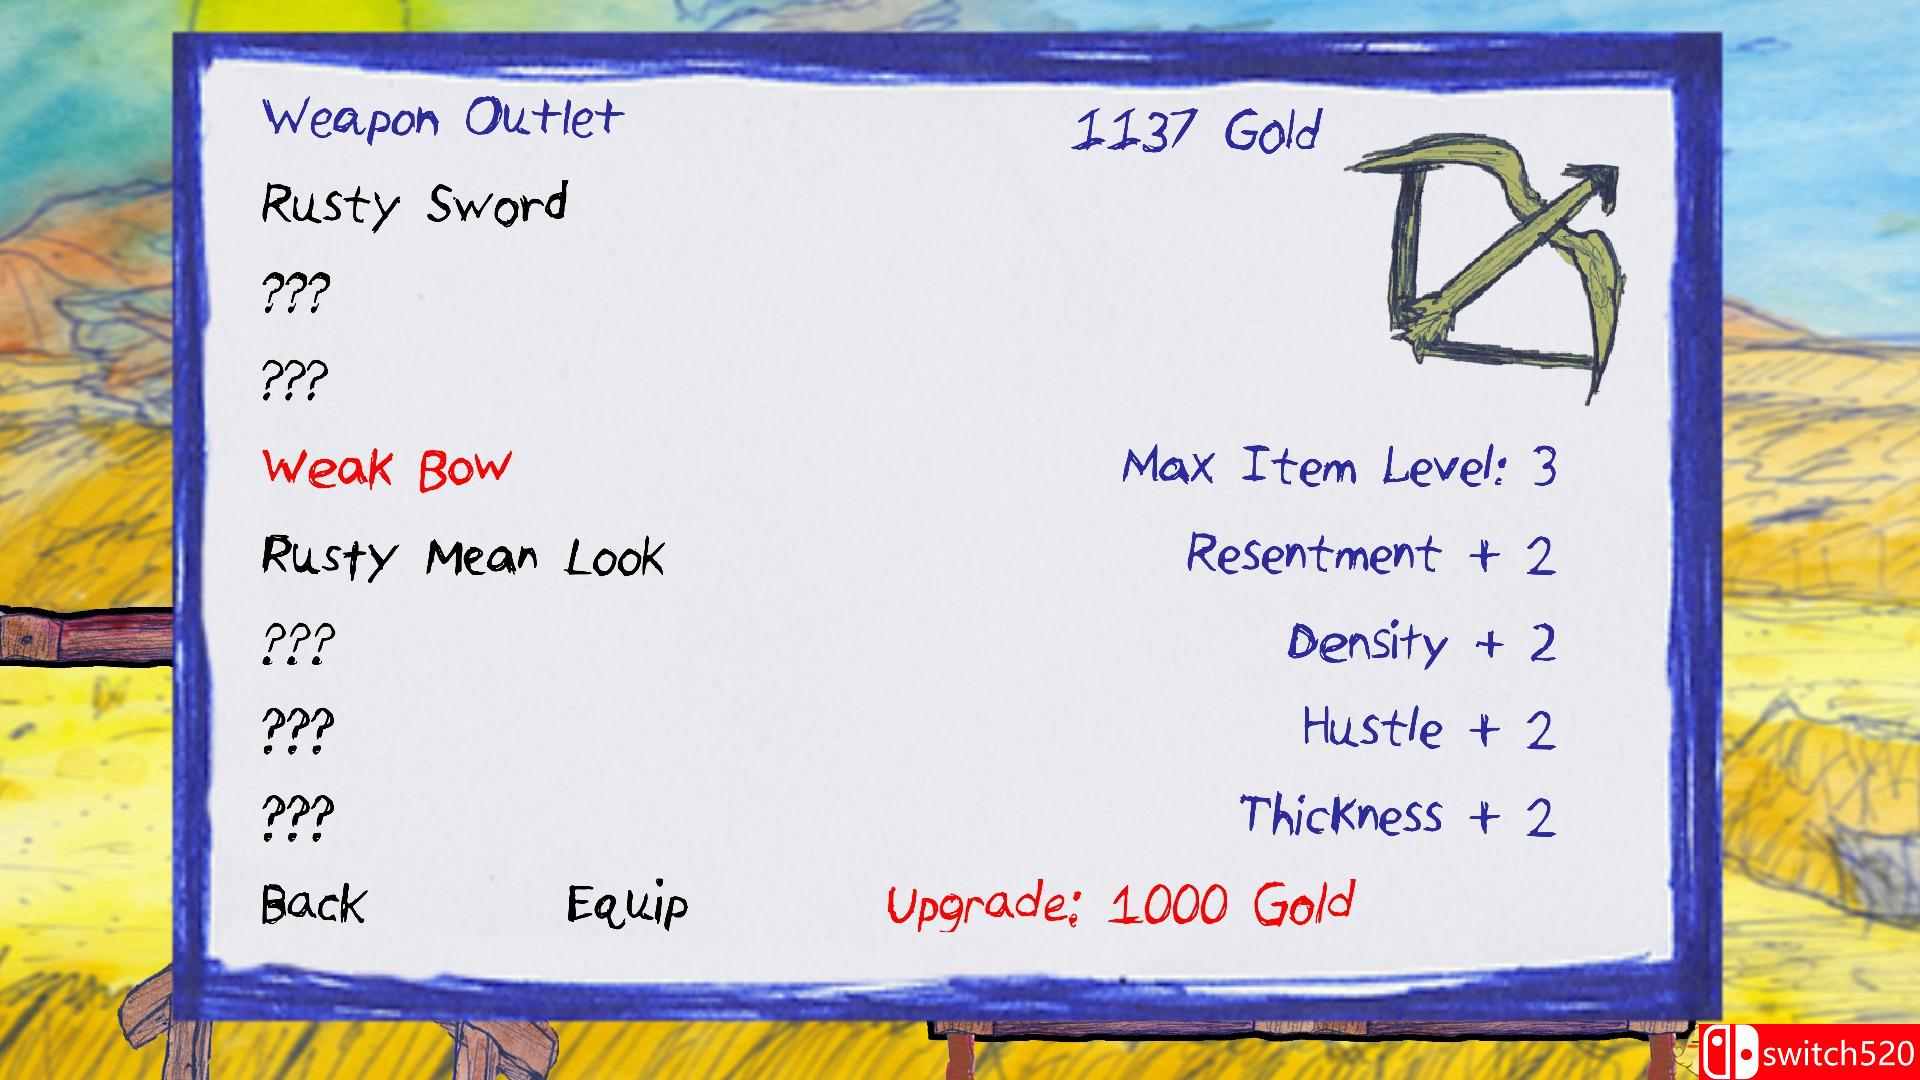 Weapon Outlet
1137 Gold
Rusty Sword
???
???
Weak Bow
Max Item Level: 3
Rusty Mean Look
Resentment + 2
???
Density + 2
???
Hustle + 2
???
Thickness + 2
Back
Equip
Upgrade: 1000 Gold
switch520